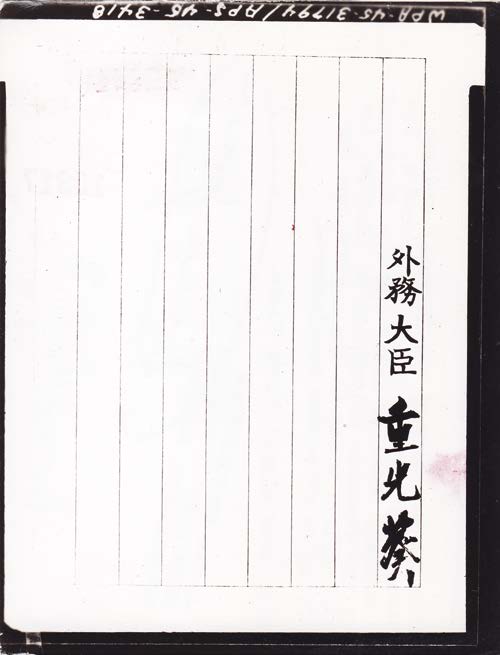 WPA-45-31794/APS-45-3418
外務大臣 重光葵